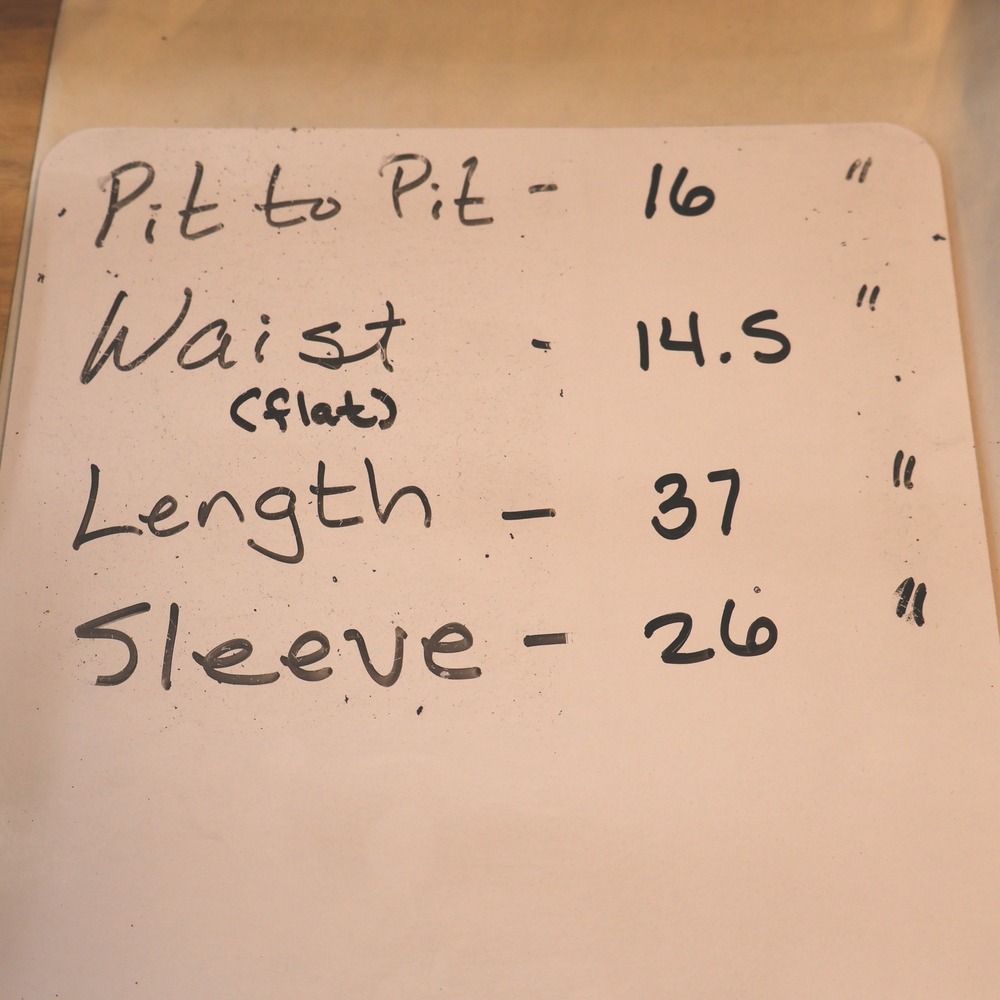 Pit to Pit - 16 "
Waist - 14.5 "
(flat)
Length - 37 "
Sleeve - 26 "